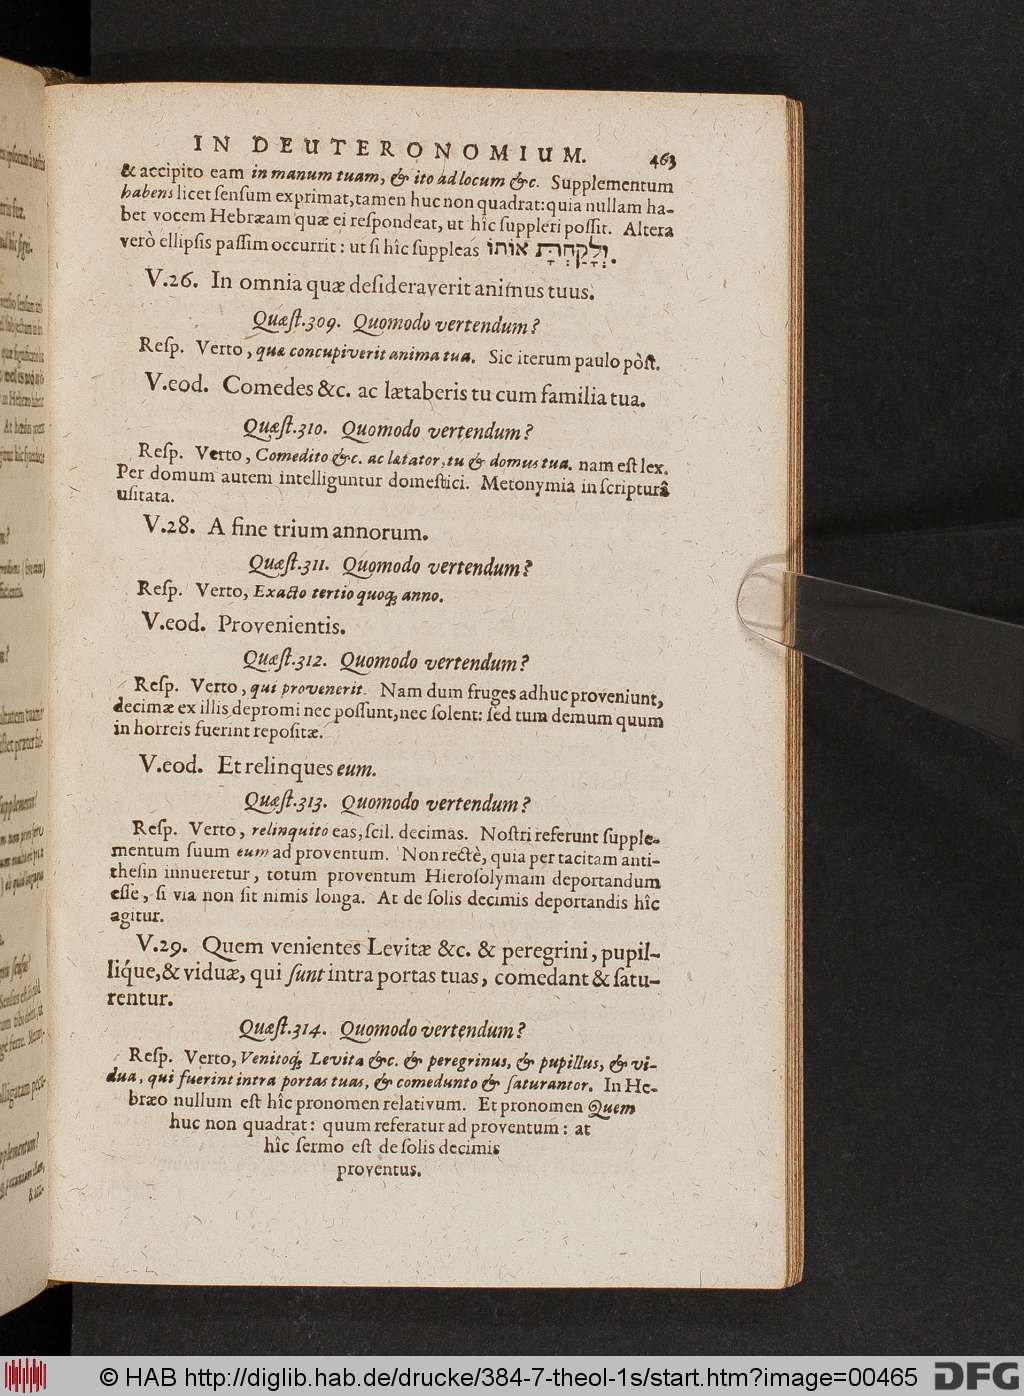 IN DEUTERONOMIUM. 463
& accipito eam in manum tuam, & ito ad locum &c. Supplementum
habens licet ſenſum exprimat, tamen huc non quadrat: quia nullam ha-
bet vocem Hebræam quæ ei reſpondeat, ut hîc ſuppleri poſſit. Altera
verò ellipſis paſſim occurrit: ut ſi hîc ſuppleas וְלָקַחְתָּ אוֹתוֹ.
V.26. In omnia quæ deſideraverit animus tuus.
Quæſt.309. Quomodo vertendum?
Reſp. Verto, quæ concupiverit anima tua. Sic iterum paulo pòſt.
V.eod. Comedes &c. ac lætaberis tu cum familia tua.
Quæſt.310. Quomodo vertendum?
Reſp. Verto, Comedito &c. ac lætator, tu & domus tua. nam eſt lex.
Per domum autem intelliguntur domeſtici. Metonymia in ſcripturâ
uſitata.
V.28. A fine trium annorum.
Quæſt.311. Quomodo vertendum?
Reſp. Verto, Exacto tertio quoq; anno.
V.eod. Provenientis.
Quæſt.312. Quomodo vertendum?
Reſp. Verto, qui provenerit. Nam dum fruges adhuc proveniunt,
decimæ ex illis depromi nec poſſunt, nec ſolent: ſed tum demum quum
in horreis fuerint repoſitæ.
V.eod. Et relinques eum.
Quæſt.313. Quomodo vertendum?
Reſp. Verto, relinquito eas, ſcil. decimas. Noſtri referunt ſupple-
mentum ſuum eum ad proventum. Non rectè, quia per tacitam anti-
theſin innueretur, totum proventum Hieroſolymam deportandum
eſſe, ſi via non ſit nimis longa. At de ſolis decimis deportandis hîc
agitur.
V.29. Quem venientes Levitæ &c. & peregrini, pupil-
lique, & viduæ, qui ſunt intra portas tuas, comedant & ſatu-
rentur.
Quæſt.314. Quomodo vertendum?
Reſp. Verto, Venitoq; Levita &c. & peregrinus, & pupillus, & vi-
dua, qui fuerint intra portas tuas, & comedunto & ſaturantor. In He-
bræo nullum eſt hîc pronomen relativum. Et pronomen Quem
huc non quadrat: quum referatur ad proventum: at
hîc ſermo eſt de ſolis decimis
proventus.
© HAB http://diglib.hab.de/drucke/384-7-theol-1s/start.htm?image=00465
DFG